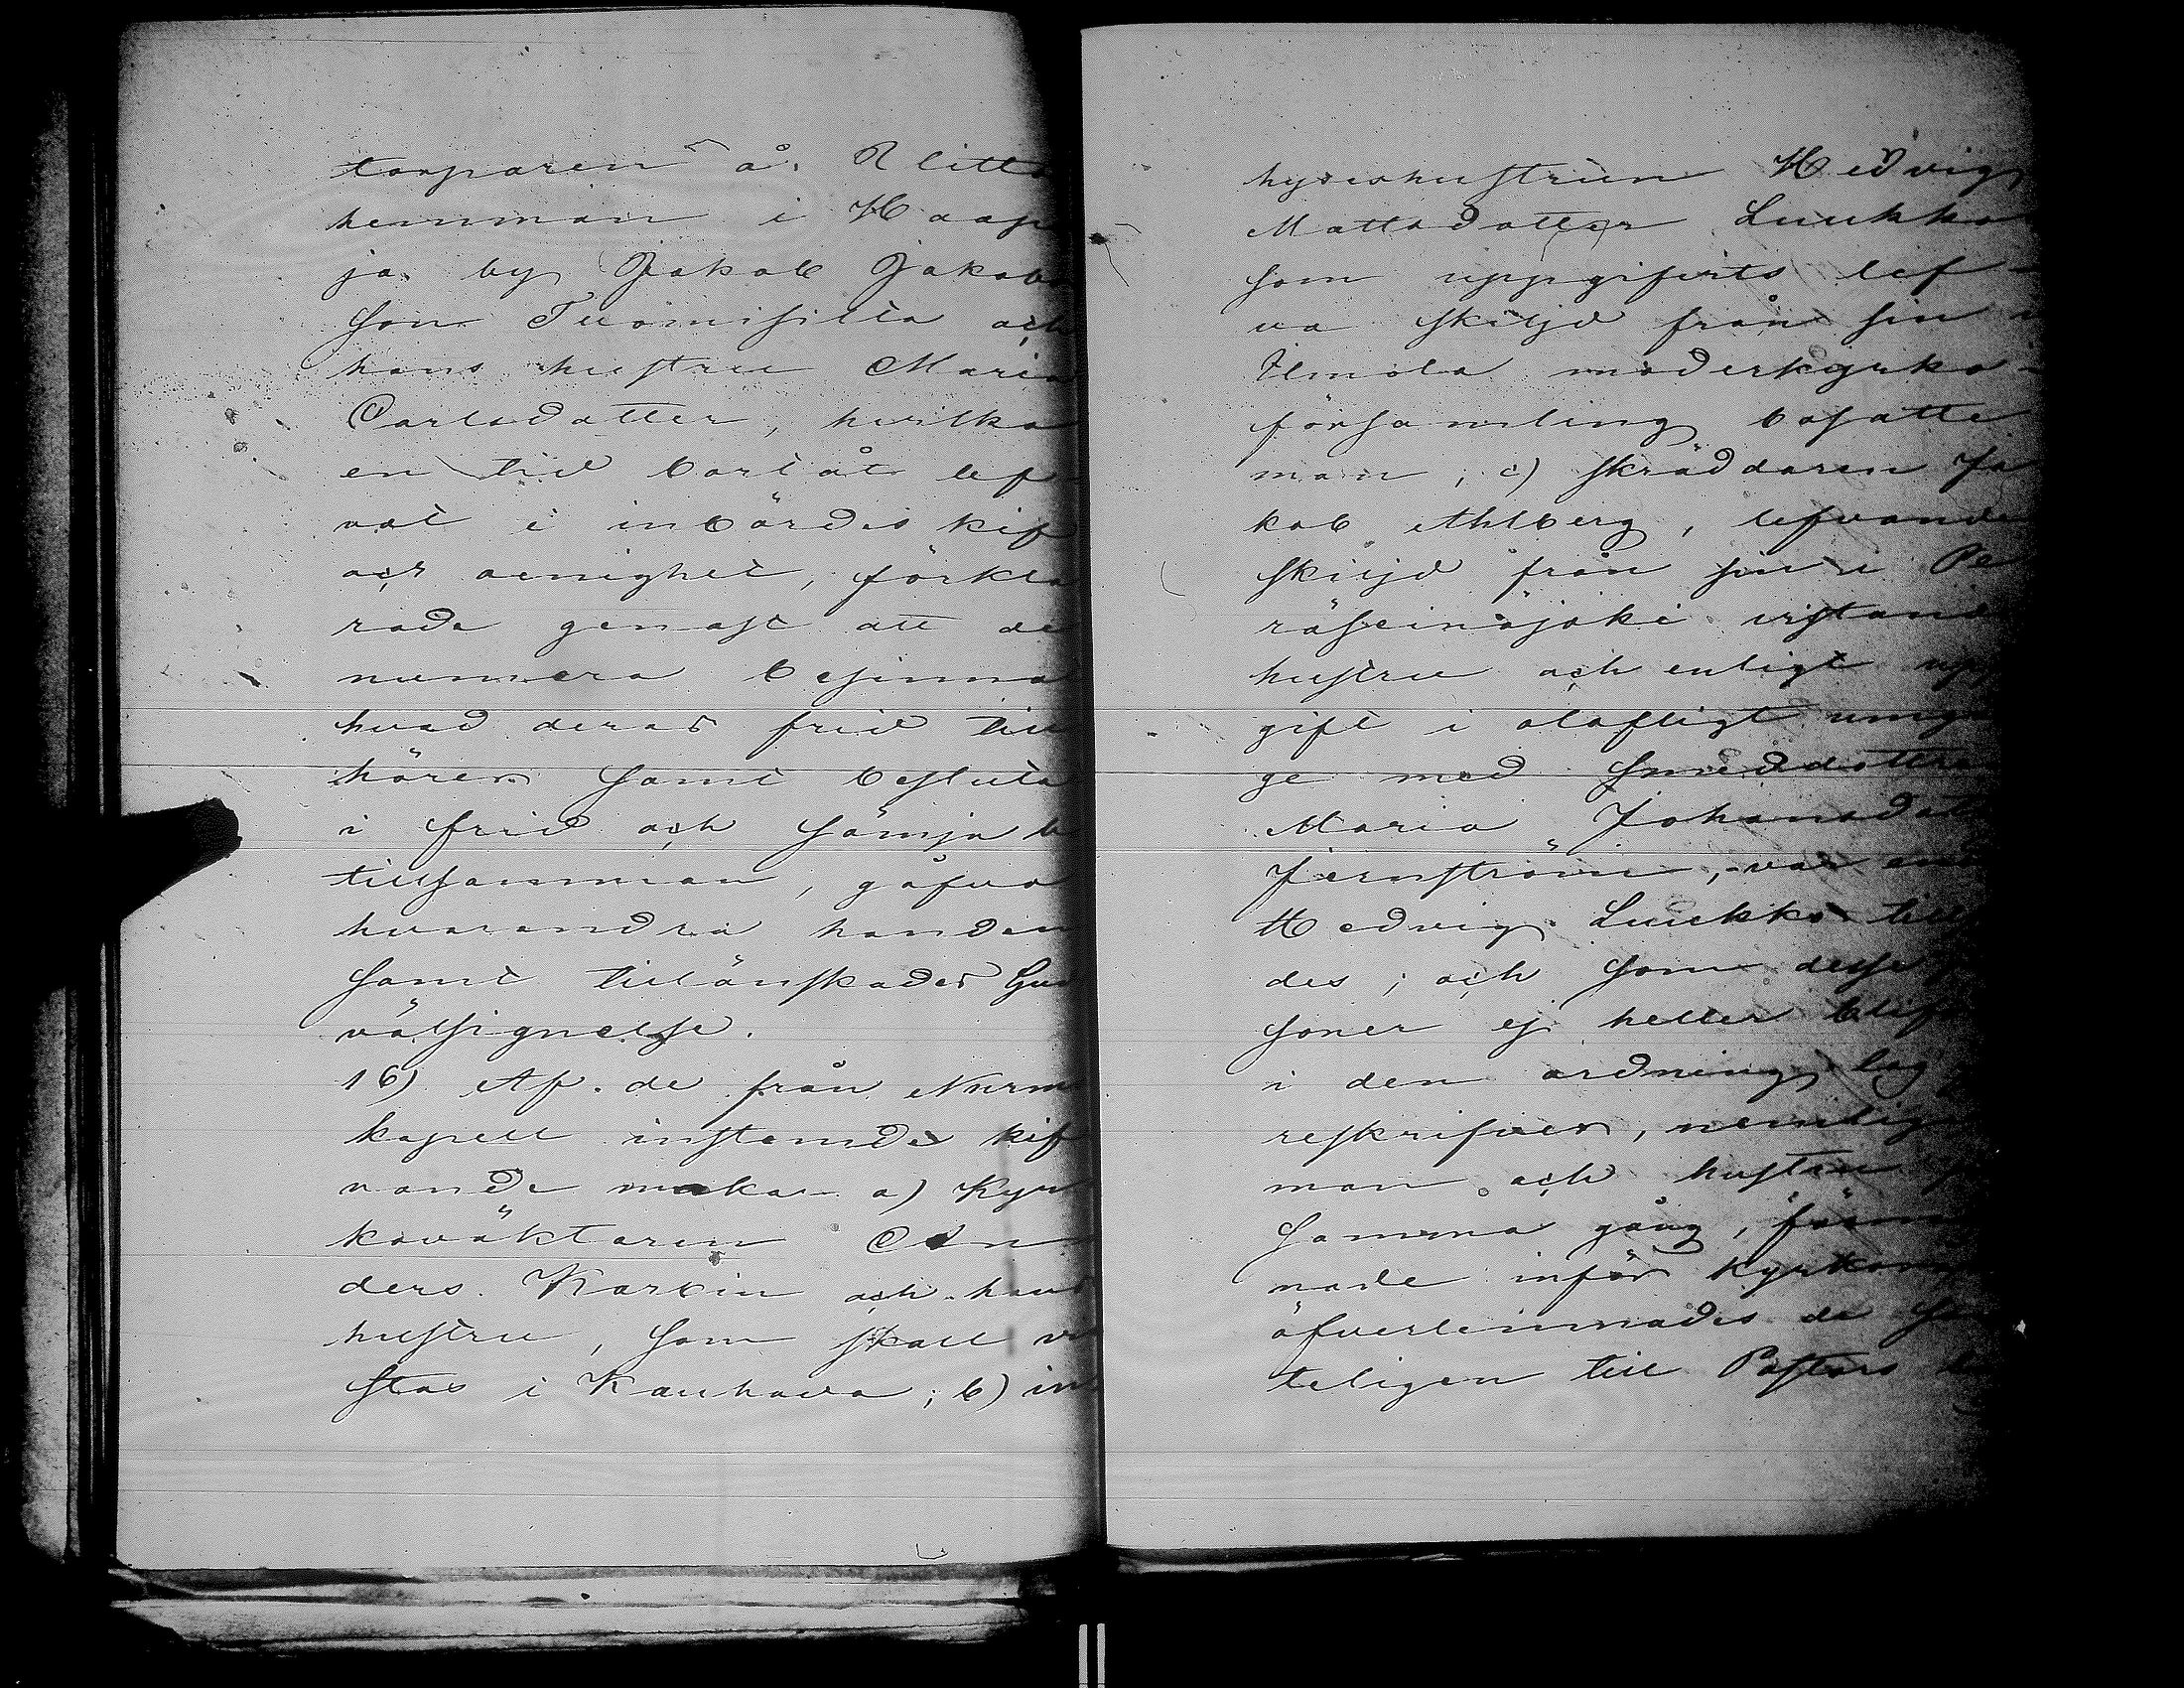 torparen å Rlitto
hemman i Haapo
ja by Jakob Jakobs
son Tuomisilta och
hans hustru Maria
Carlsdotter, hvilka
en tid bortåt lef-
vat i inbördes kif
och oenighet, förkla
rade genast att de
nummera besinna
hvad deras frid till
hörer samt besluta
i frid och sämja b
tillsamman, gåfvo
hvarandra handen
samt tillönskades Gu
välsignelse.
16) Af de från Nurm
kapell instämde kif
vande makar a) Kyr
koväktaren An
ders Karbin och hans
hustru, som skall vi
stas i Kauhava; b) in
hyseshustrun Hedvig
Mattsdotter Luukko
som uppgifvits lef-
va skiljd från sin i
Ilmola moderkyrko-
församling bosatte
man; c) skräddaren Ja
kob Ahlberg, lefvande
skiljd från sin i Pe
räseinäjoki vistande
hustru och enligt upp
gift i olofligt umgän
ge med smeddottren
Maria Johansdott
Jernström, var en
Hedvig Luukko till
des; och som desse
soner ej heller blif
i den ordning lag
reskrifver, nemlig
man och hustru
samma gång, förm
nade inför Kyrkor
öfverlemnades de sm
teligen till Pastors